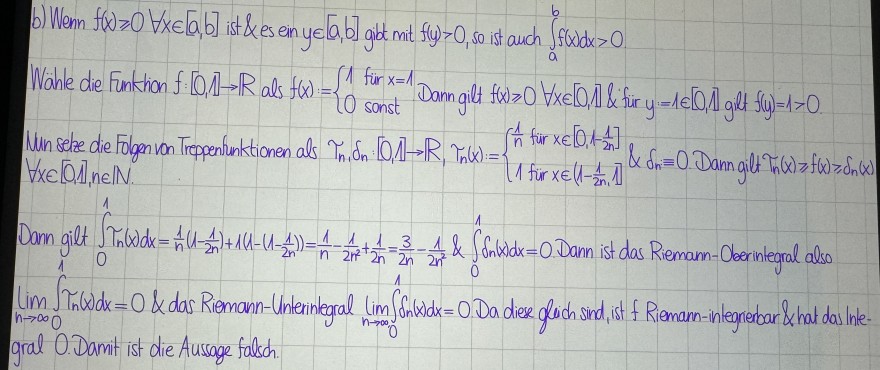 b) Wenn f(x)≥0 ∀x∈[a,b] ist & es ein y∈[a,b] gibt mit f(y)>0, so ist auch ∫_a^b f(x)dx>0.
Wähle die Funktion f:[0,1]→ℝ als f(x):={1 für x=1, 0 sonst. Dann gilt f(x)≥0 ∀x∈[0,1] & für y:=1∈[0,1] gilt f(y)=1>0.
Nun setze die Folgen von Treppenfunktionen als τₙ,δₙ:[0,1]→ℝ, τₙ(x):={1/n für x∈[0,1-1/2n], 1 für x∈(1-1/2n,1] & δₙ≡0. Dann gilt τₙ(x)≥f(x)≥δₙ(x)
∀x∈[0,1],n∈ℕ.
Dann gilt ∫_0^1 τₙ(x)dx=1/n(1-1/2n)+1(1-(1-1/2n))=1/n-1/2n²+1/2n=3/2n-1/2n² & ∫_0^1 δₙ(x)dx=0. Dann ist das Riemann-Oberintegral also
lim_{n→∞} ∫_0^1 τₙ(x)dx=0 & das Riemann-Unterintegral lim_{n→∞} ∫_0^1 δₙ(x)dx=0. Da diese gleich sind, ist f Riemann-integrierbar & hat das Inte-
gral 0. Damit ist die Aussage falsch.